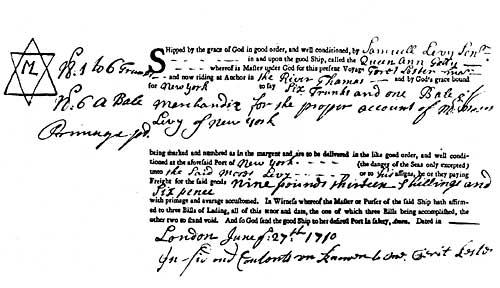 Shipped by the grace of God in good order, and well conditioned, by Samuell Levy Senr.
in and upon the good Ship, called the Queen Ann Gally
whereof is Master under God for this present Voyage
and now riding at Anchor in the River Thames and by God's grace bound
for New York to say Six Trunks and one Bale of
merchandiz for the proper account of Mr Moses
Levy of New York
ML
N. 1 to 6 Trunks
N. 6 A Bale
Primage pd.
being marked and numbred as in the margent and are to be delivered in the like good order, and well condi-
tioned at the aforesaid Port of New York (the danger of the Seas only excepted)
unto the Said Moses Levy or to his assigns, he or they paying
Freight for the said goods Nine pounds thirteen Shillings and
Six pence
with primage and average accustomed. In Witness whereof the Master or Purser of the said Ship hath affirm-
ed to three Bills of Lading, all of this tenor and date, the one of which three Bills being accomplished, the
other two to stand void. And so God send the good Ship to her desired Port in safety, Amen. Dated in
London June 27th 1710